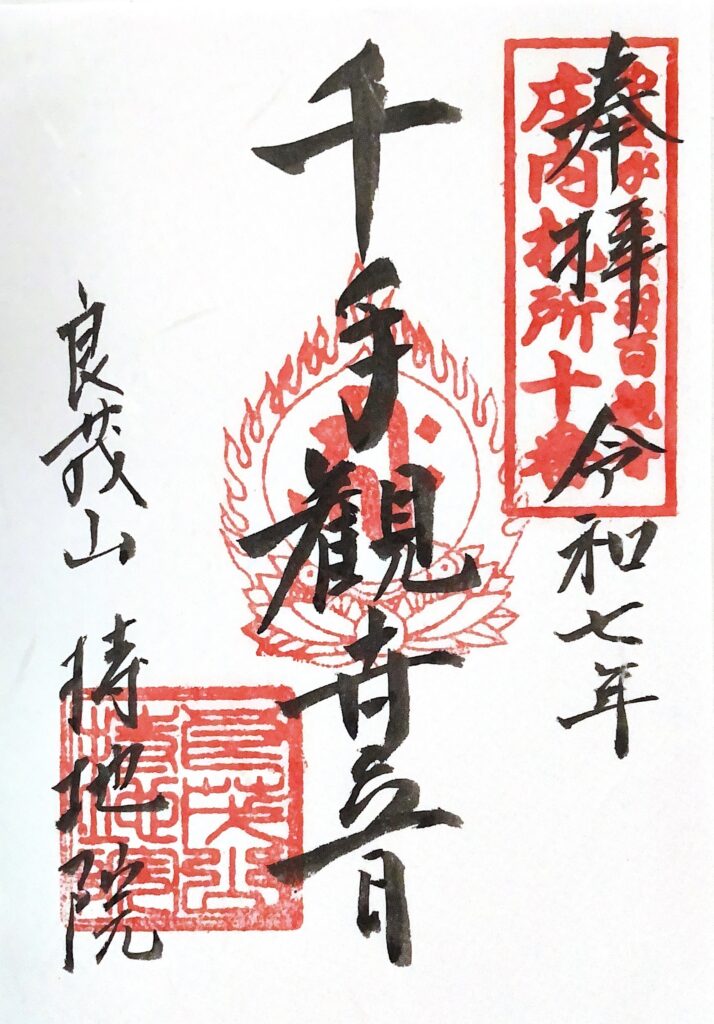 奉拝 令和七年
庄内札所十番
千手観世音
良茂山 持地院
良茂山
持地院